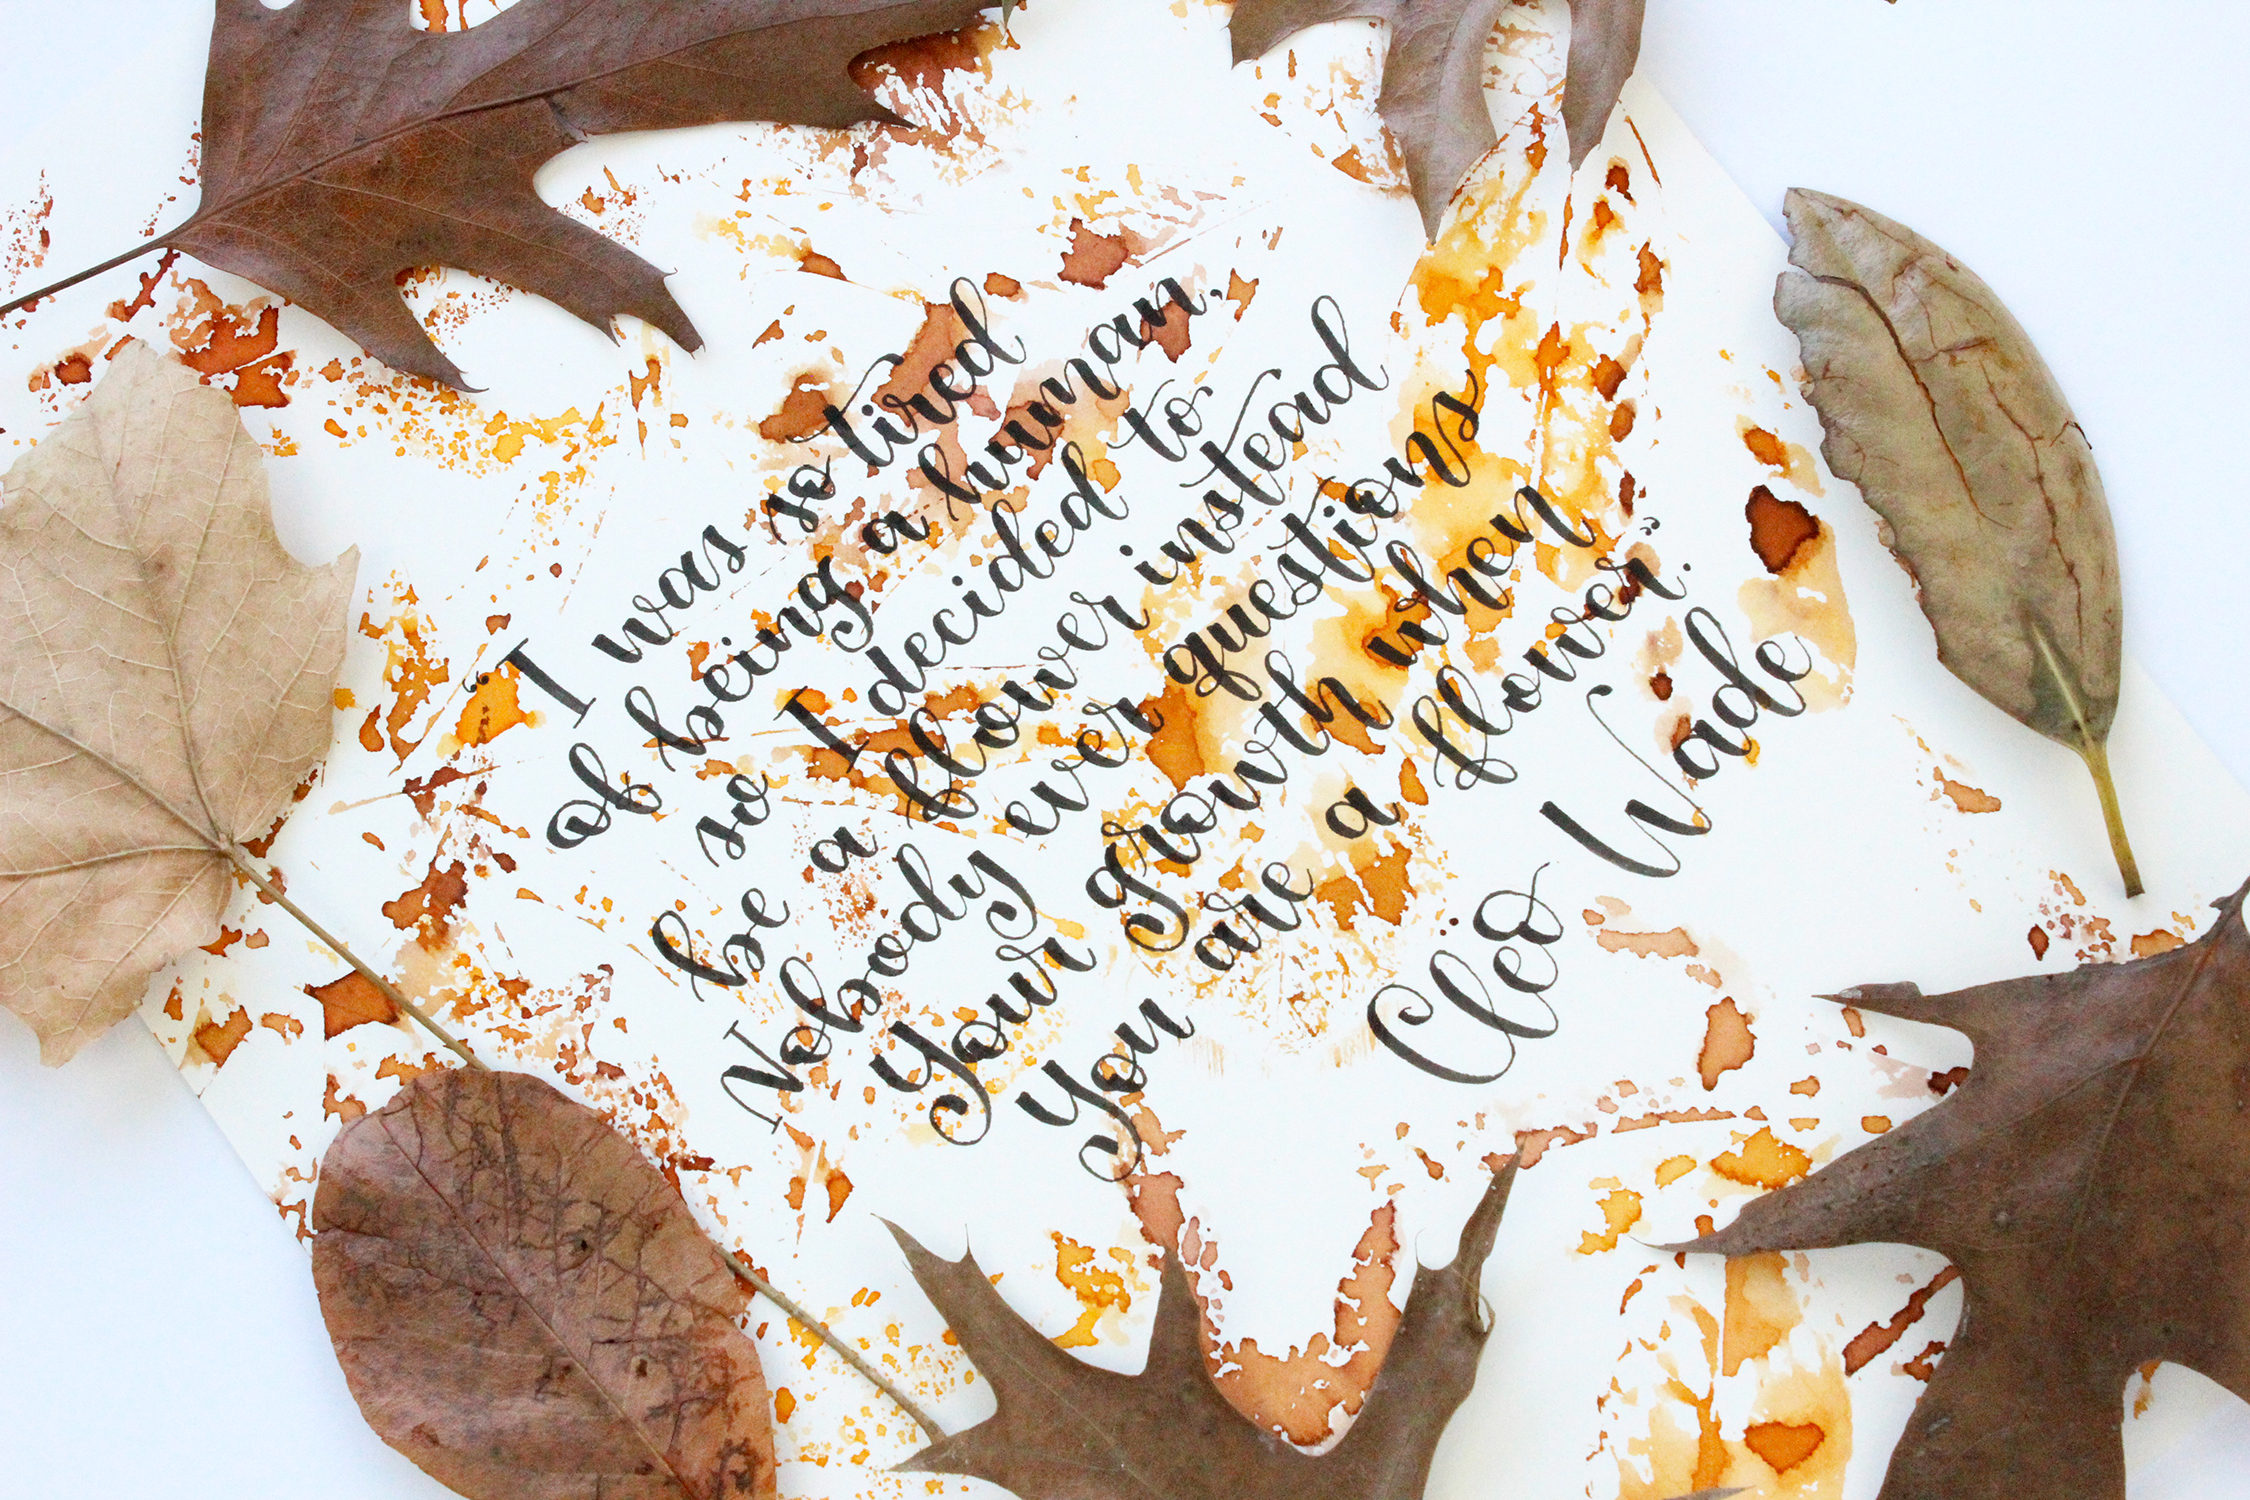 "I was so tired
of being a human,
so I decided to
be a flower instead
Nobody ever questions
Your growth when
You are a flower."
Cleo Wade